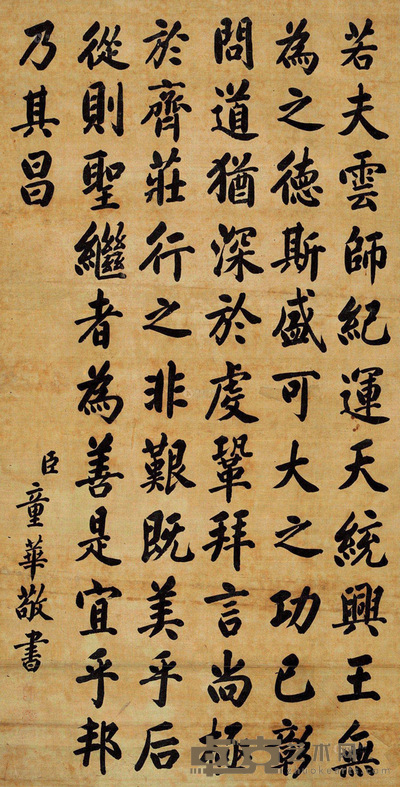 若夫雲師紀運天統興王無
為之德斯盛可大之功已彰
問道猶深於虔鞏拜言尚極
於齊莊行之非艱既美乎后
從則聖繼者為善是宜乎邦
乃其昌
臣童華敬書